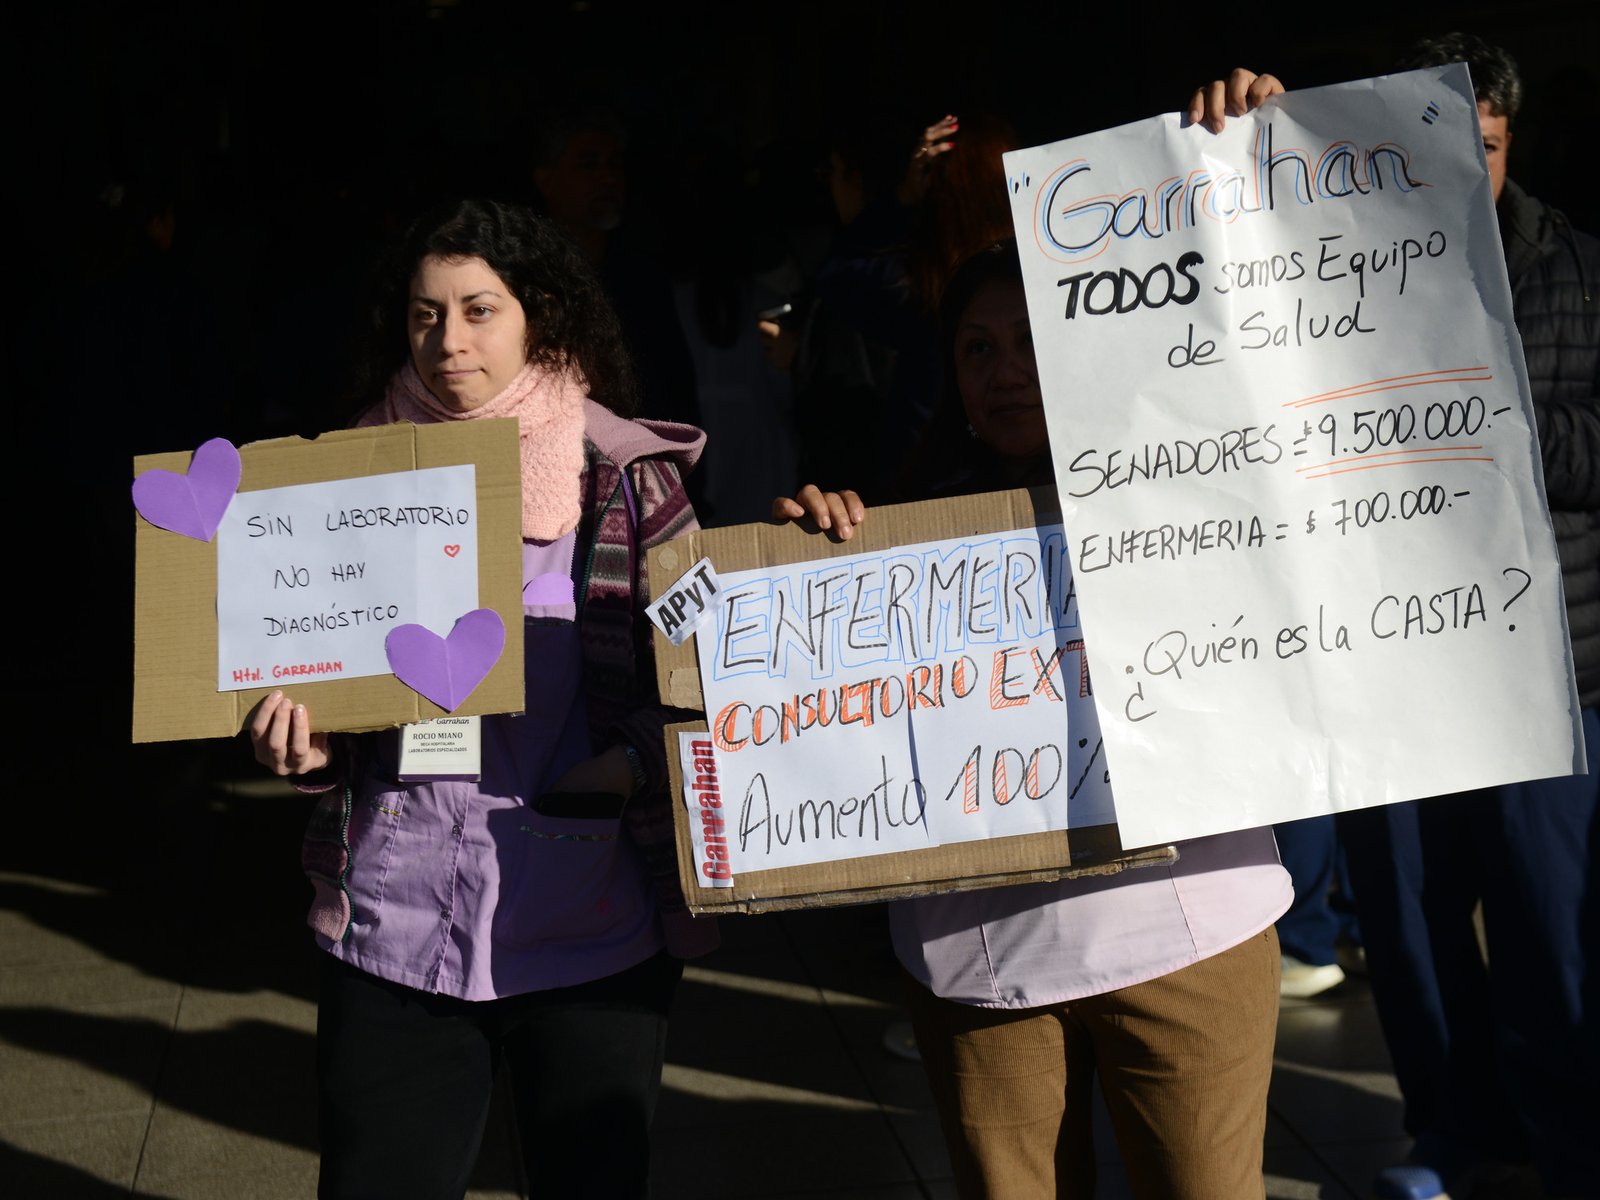 SIN LABORATORIO
NO HAY
DIAGNÓSTICO
Htal. GARRAHAN
Garrahan
ROCIO MIANO
LABORATORIOS ESPECIALIZADOS
APyT
ENFERMERIA
CONSULTORIO EXT
Aumento 100%
Garrahan
"Garrahan"
TODOS somos Equipo
de Salud
SENADORES = $9.500.000.-
ENFERMERIA = $ 700.000.-
¿Quién es la CASTA?